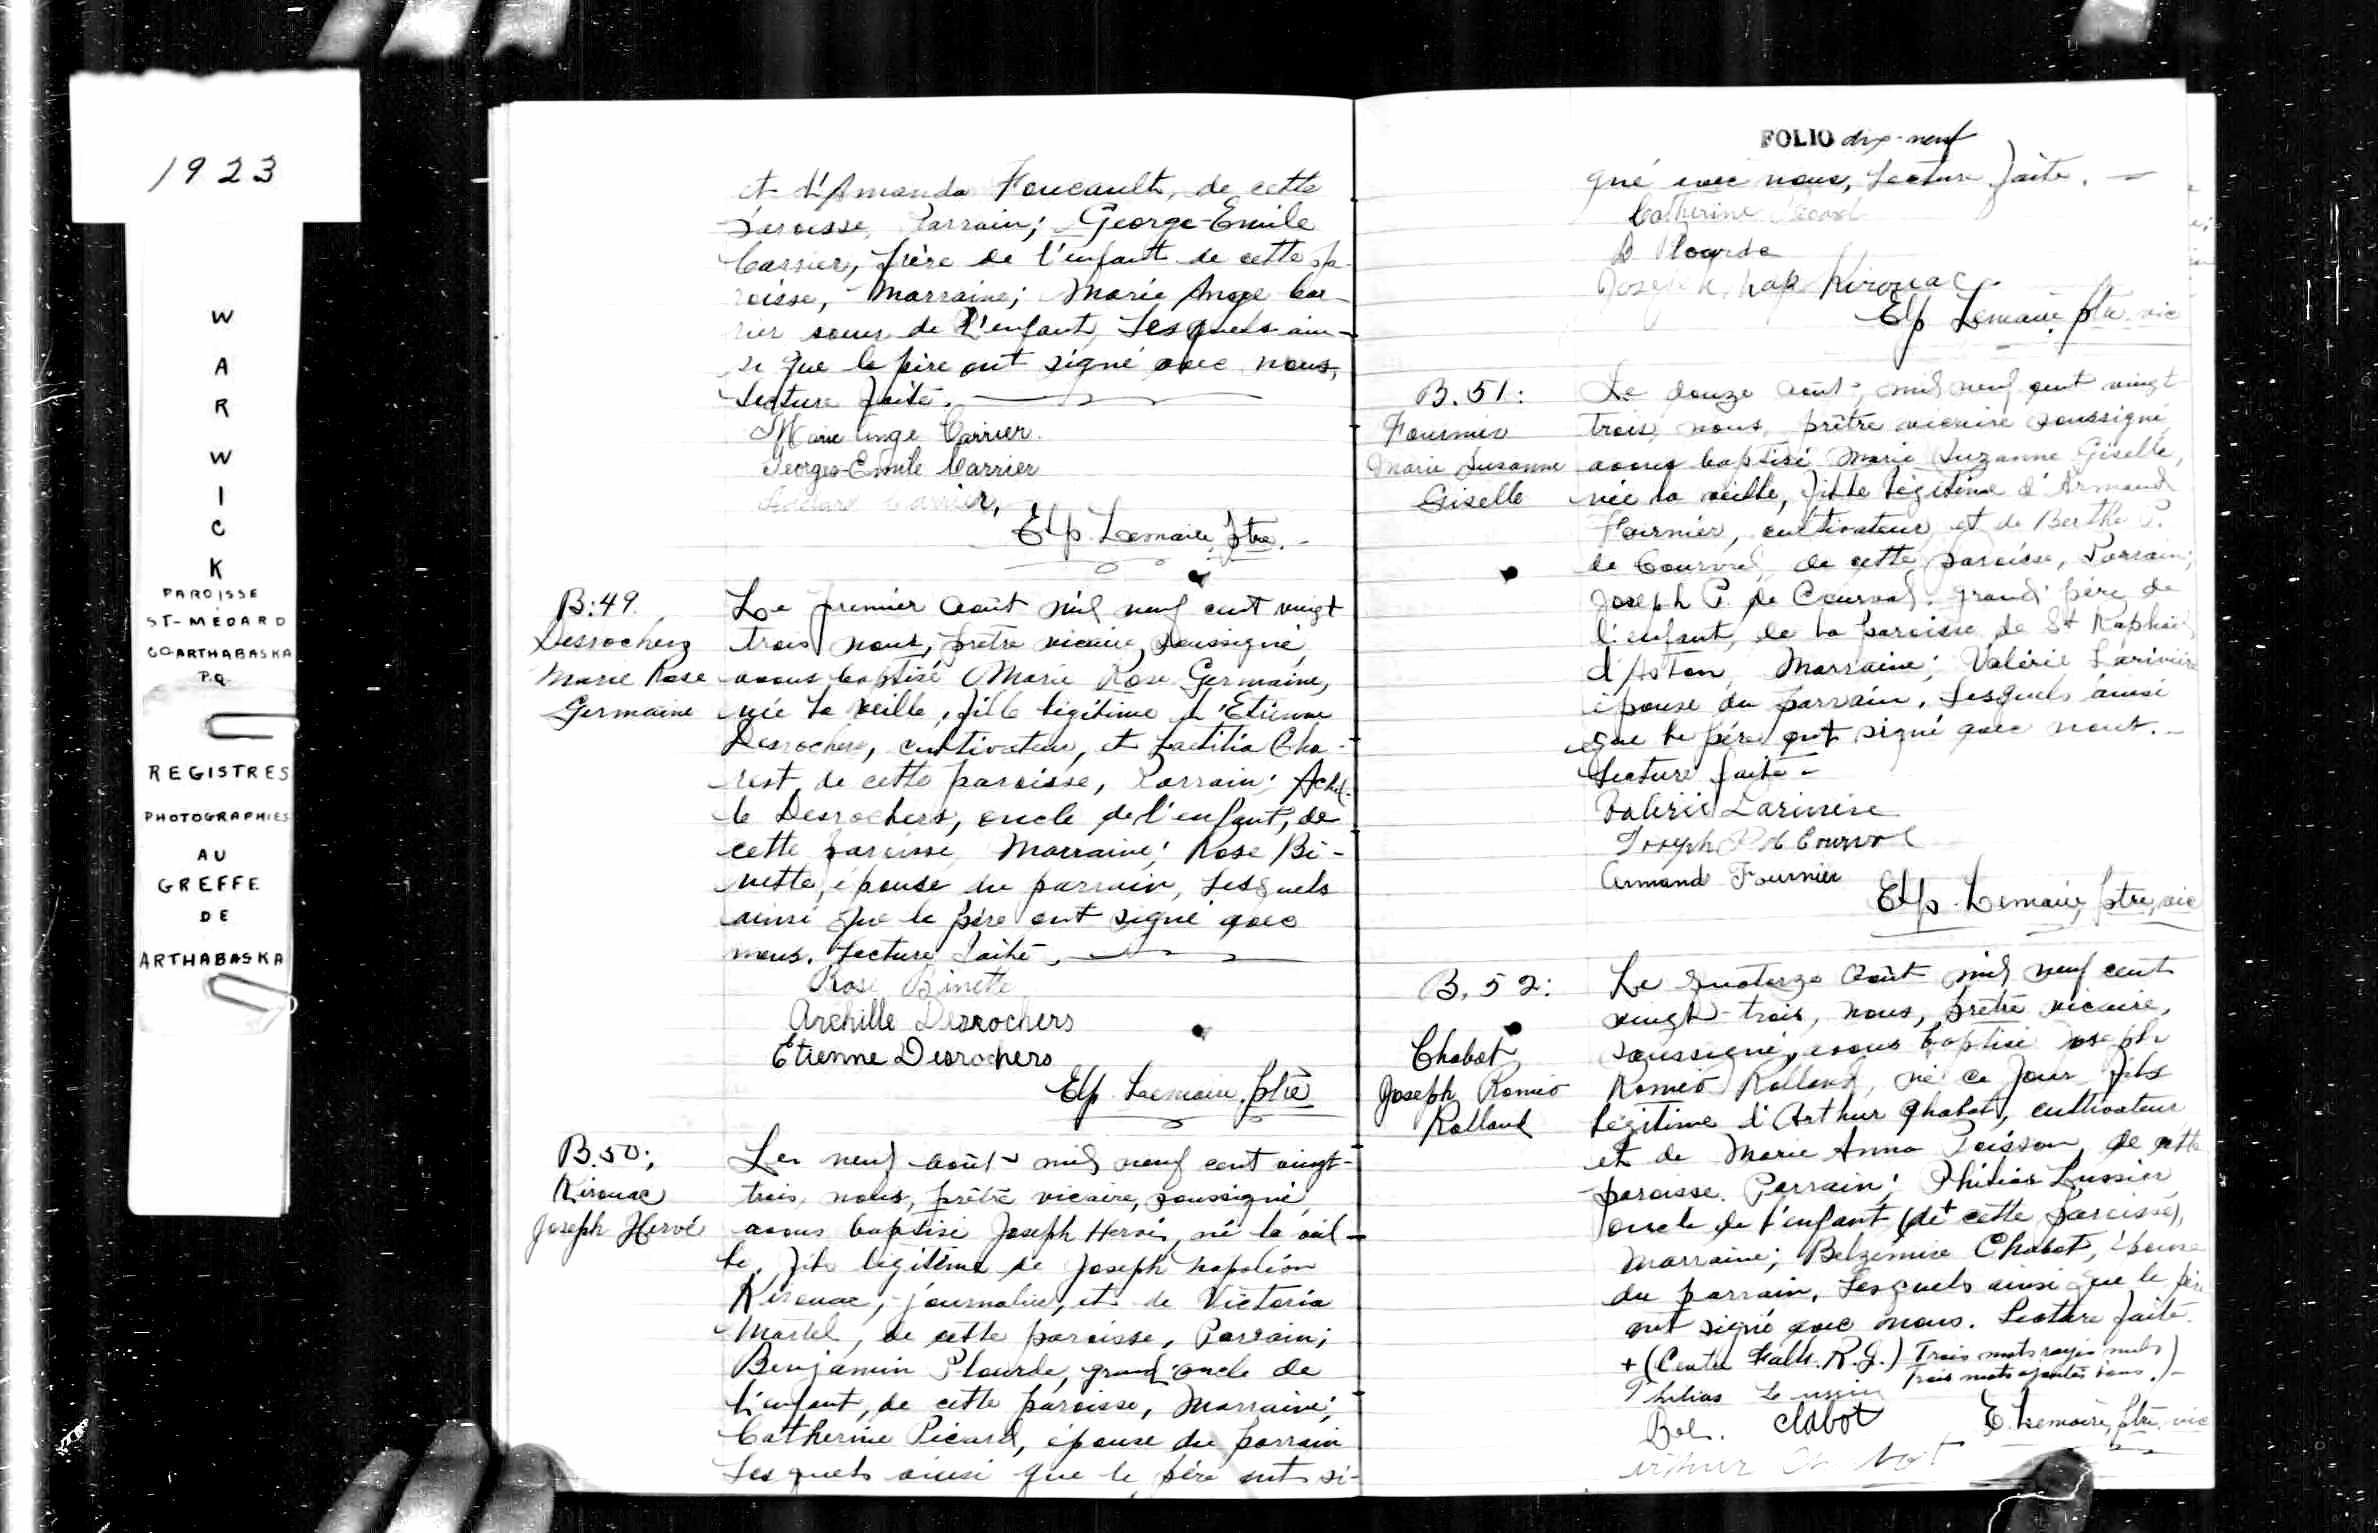 1923
W
A
R
W
I
C
K
PAROISSE
ST-MÉDARD
CO ARTHABASKA
P.Q.
REGISTRES
PHOTOGRAPHIES
AU
GREFFE
DE
ARTHABASKA
et d'Amanda Foucault, de cette
paroisse, Parrain; George-Emile
Carrier, frère de l'enfant de cette pa-
roisse, - Marraine; Marie Ange Car-
rier soeur de l'enfant, Lesquels ain-
si que le père ont signé avec nous,
Lecture faite.
Marie Ange Carrier
Georges-Emile Carrier
Carrier,
Elp. Lemaire, ptre.
B:49.
Desrochers
Marie Rose
Germaine
Le premier août mil neuf cent vingt
trois nous, prêtre vicaire, soussigné,
avons baptisé Marie Rose Germaine,
née la veille, fille légitime d'Etienne
Desrochers, cultivateur, et Laetitia Cha-
rest, de cette paroisse, Parrain; Achil-
le Desrochers, oncle de l'enfant, de
cette paroisse Marraine; Rose Bi-
nette, épouse du parrain, Lesquels
ainsi que le père ont signé avec
nous. Lecture faite.
Rose Binette
Archille Desrochers
Etienne Desrochers
Elp Lemaire, ptre
B.50;
Kirouac
Joseph Hervé
Le neuf août mil neuf cent vingt-
trois, nous, prêtre vicaire, soussigné,
avons baptisé Joseph Hervé, né la veil-
le, fils légitime de Joseph Napoléon
Kirouac, journalier, et de Victoria
Martel, de cette paroisse, Parrain;
Benjamin Plourde, grand'oncle de
l'enfant, de cette paroisse, Marraine;
Catherine Picard, épouse du parrain
Lesquels ainsi que le père ont si-
FOLIO dix-neuf
gné avec nous, Lecture faite. -
Catherine Picard
B Plourde
Joseph Nap Kirouac
Elp Lemaire, ptre vic
B.51:
Fournier
Marie Suzanne
Giselle
Le douze août, mil neuf cent vingt
trois, nous, prêtre vicaire soussigné,
avons baptisé Marie Suzanne Giselle,
née la veille, fille légitime d'Armand
Fournier, cultivateur et de Berthe P.
de Courval, de cette paroisse, Parrain;
Joseph P. de Courval, grand'père de
l'enfant, de la paroisse de St Raphaël
d'Aston, Marraine; Valérie Larivière
épouse du parrain, Lesquels ainsi
que le père ont signé avec nous. -
Lecture faite -
Valérie Larivière
Joseph P de Courval
Armand Fournier
Elp. Lemaire, ptre, vic
B.52:
Chabot
Joseph Roméo
Rolland
Le quatorze août mil neuf cent
vingt-trois, nous, prêtre vicaire,
soussigné, avons baptisé Joseph
Roméo Rolland, né ce jour, fils
légitime d'Arthur Chabot, cultivateur
et de Marie Anna Poisson, de cette
paroisse. Parrain; Philias Lussier,
oncle de l'enfant (de + cette paroisse),
Marraine; Belzémire Chabot, épouse
du parrain, Lesquels ainsi que le père
ont signé avec nous. Lecture faite.
+ (Central Falls. R.I.) Trois mots rayés nuls)
Trois mots ajoutés bons.)-
Philias Lussier
Bel. Chabot
E. Lemaire, ptre, vic
Arthur Chabot